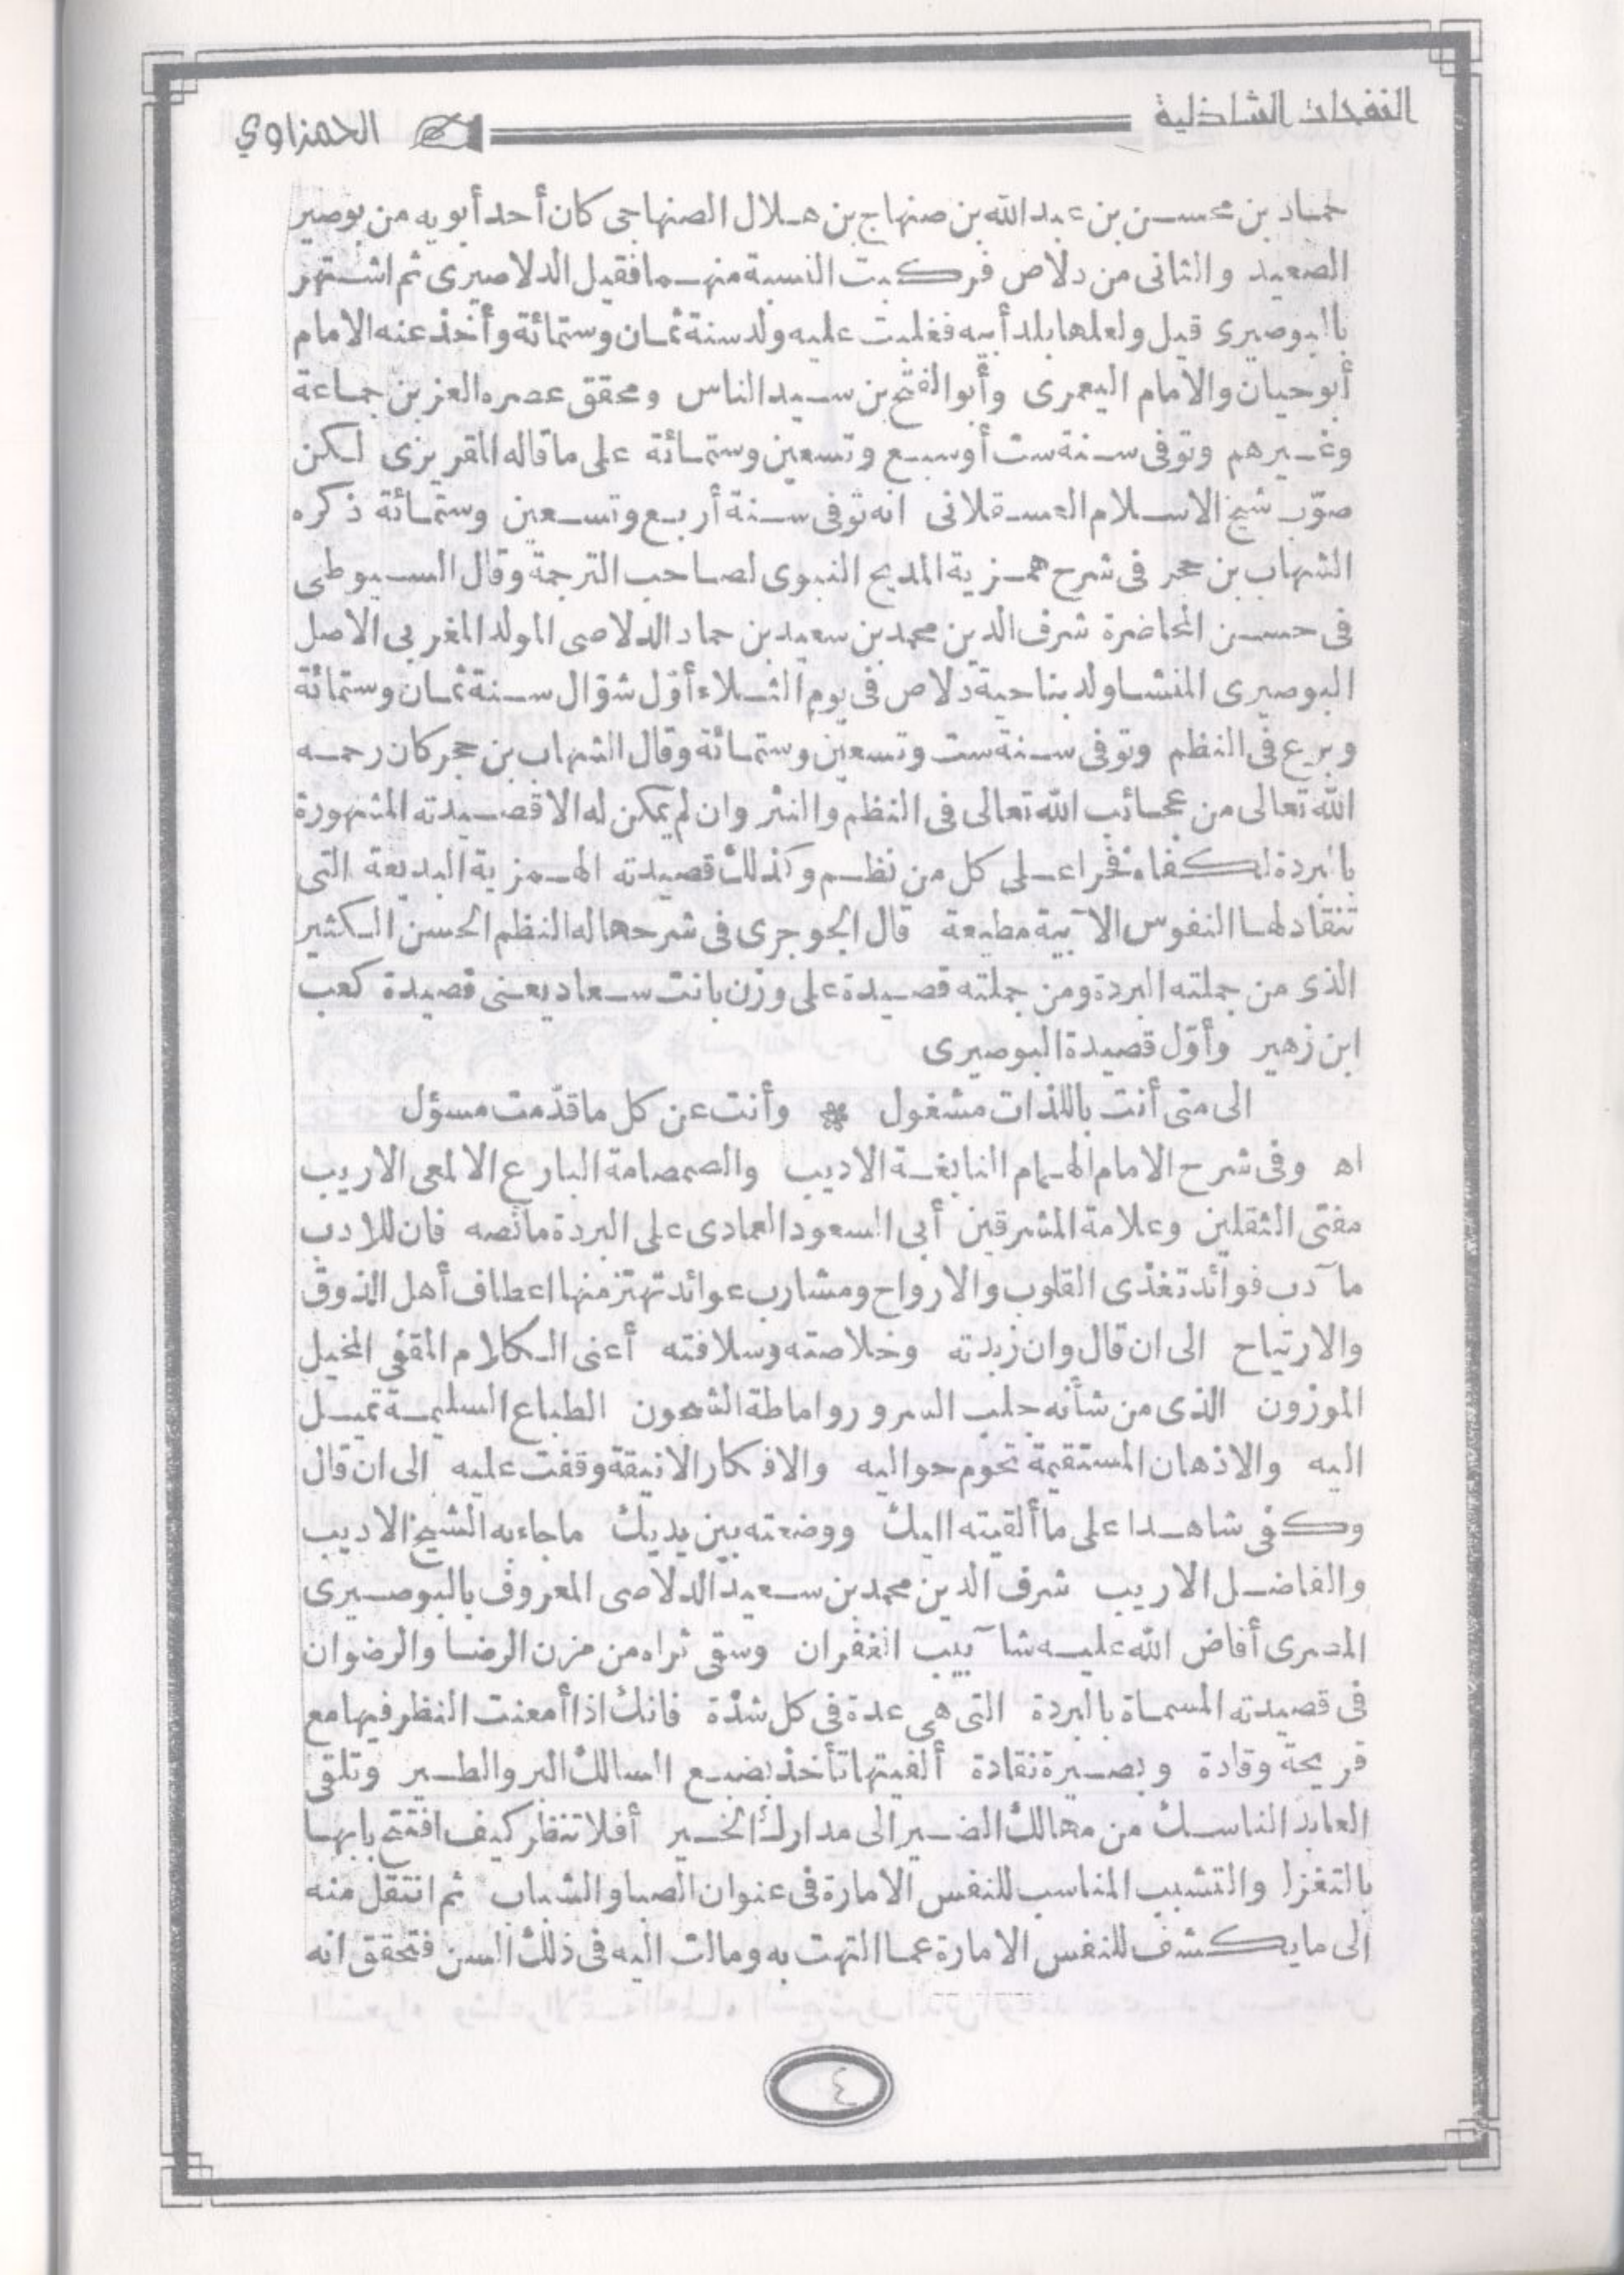 النفحات الشاذلية
الحمزاوي
حماد بن محسن بن عبد الله بن صنهاج بن هلال الصنهاجى كان أحد أبويه من بوصير
الصعيد والثانى من دلاص فركبت النسبة منهما فقيل الدلاصيرى ثم اشتهر
بالبوصيرى قيل ولعلها بلد أبيه فغلبت عليه ولد سنة ثمان وستمائة وأخذ عنه الامام
أبو حيان والامام اليعمرى وأبو الفتح بن سيد الناس ومحقق عصره العز بن جماعة
وغيرهم وتوفى سنة ست أو سبع وتسعين وستمائة على ما قاله المقريزى لكن
صوّب شيخ الاسلام العسقلانى انه توفى سنة أربع وتسعين وستمائة ذكره
الشهاب بن حجر فى شرح همزية المديح النبوى لصاحب الترجمة وقال السيوطى
فى حسن المحاضرة شرف الدين محمد بن سعيد بن حماد الدلاصى المولد المغربى الاصل
البوصيرى المنشا ولد بناحية دلاص فى يوم الثلاء أوّل شوّال سنة ثمان وستمائة
وبرع فى النظم وتوفى سنة ست وتسعين وستمائة وقال الشهاب بن حجر كان رحمه
الله تعالى من عجائب الله تعالى فى النظم والنثر وان لم يكن له الا قصيدته المشهورة
بالبردة لكفاه فخرا على كل من نظم وكذلك قصيدته الهمزية البديعة التى
تنقاد لها النفوس الآبية مطيعة قال الجوجرى فى شرحها له النظم الحسن الكثير
الذى من جملته البردة ومن جملته قصيدة على وزن بانت سعاد يعنى قصيدة كعب
ابن زهير وأوّل قصيدة البوصيرى
الى متى أنت باللذات مشغول * وأنت عن كل ما قدّمت مسؤل
اه وفى شرح الامام الهمام النابغة الاديب والصمصامة البارع الالمعى الاريب
مفتى الثقلين وعلامة المشرقين أبى السعود العمادى على البردة ما نصه فان للادب
مآدب فوائد تغذى القلوب والارواح ومشارب عوائد تهتز منها اعطاف أهل الذوق
والارتياح الى ان قال وان زبدته وخلاصته وسلافته أعنى الكلام المقفى المخيل
الموزون الذى من شأنه جلب السرور واماطة الشجون الطباع السليمة تميل
اليه والاذهان المستقيمة تحوم حواليه والافكار الانيقة وقفت عليه الى ان قال
وكفى شاهدا على ما ألقيته اليك ووضعته بين يديك ما جاء به الشيخ الاديب
والفاضل الاريب شرف الدين محمد بن سعيد الدلاصى المعروف بالبوصيرى
المصرى أفاض الله عليه شآبيب الغفران وسقى ثراه من مزن الرضا والرضوان
فى قصيدته المسماة بالبردة التى هى عدة فى كل شدّة فانك اذا أمعنت النظر فيها مع
قريحة وقادة وبصيرة نقادة ألفيتها تأخذ بضبع السالك البر والطير وتلقى
العابد الناسك من مهالك الضير الى مدارك الخير أفلا تنظر كيف افتتح بابها
بالتغزل والتشبيب المناسب للنفس الامارة فى عنوان الصبا والشباب ثم انتقل منه
الى ما يكشف للنفس الامارة عما التهت به ومالت اليه فى ذلك السن فتحقق انه
٤